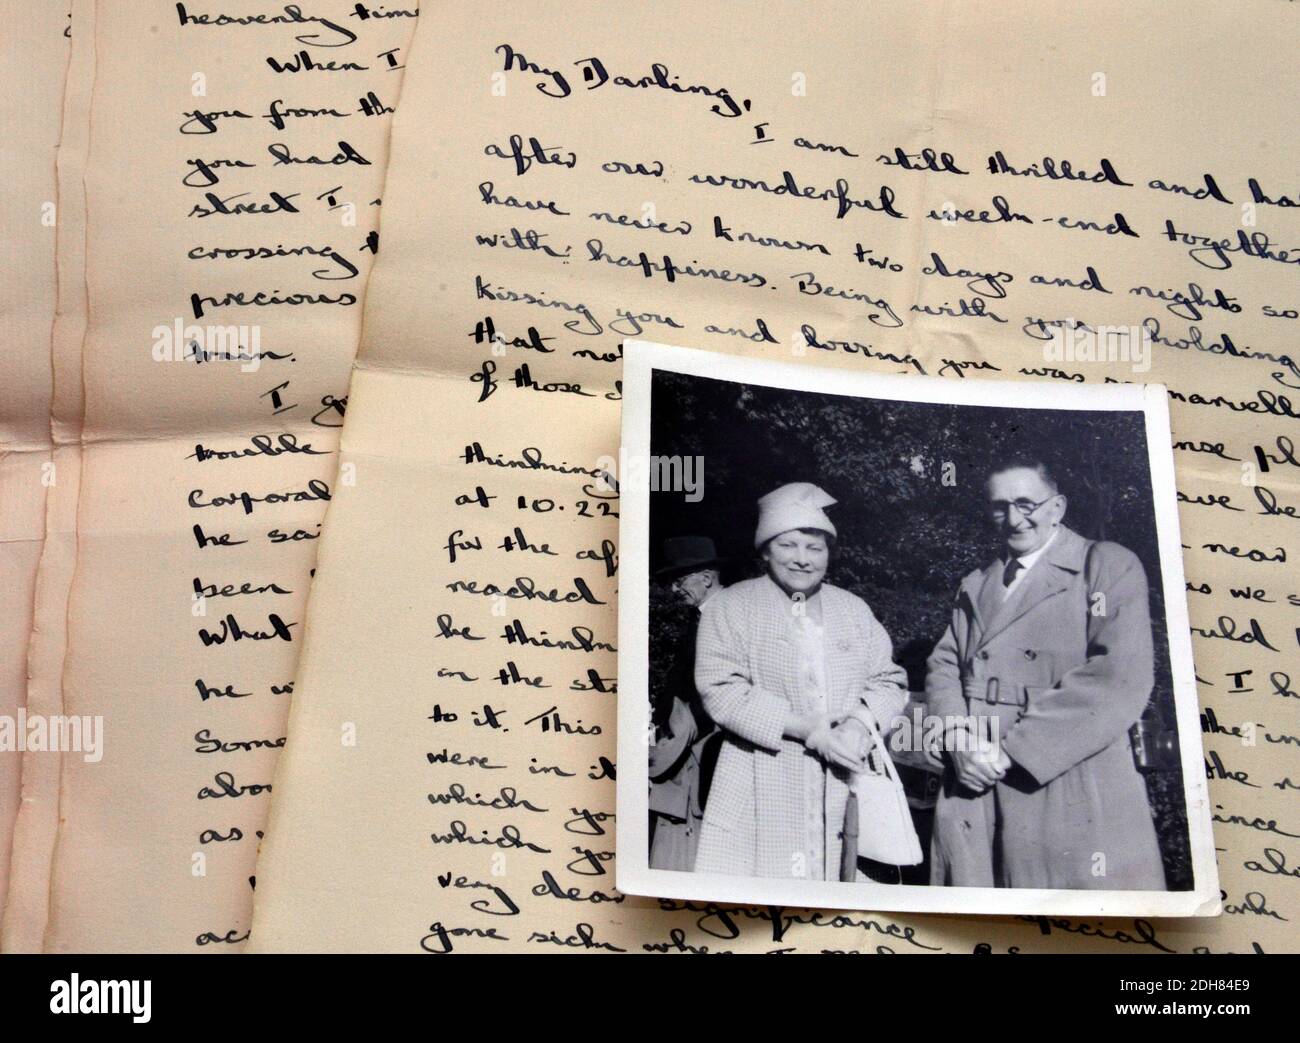 heavenly time
When I
you from th
you had
street I
crossing t
precious
train.
I g
trouble
Corporal
he sai
been
What
he w
Some
abo
as
ac
My Darling,
I am still thrilled and ha
after our wonderful week-end together
have never known two days and nights so
with happiness. Being with you - holding
kissing you and loving you was so marvell
that no
of those d
nse pl
thinking
ave be
at 10.22
near
for the af
as we s
reached
ould
he think
I h
in the st
the in
to it. This
the n
were in it
ince
which yo
which yo
very dear significance special and
gone sick when I
alamy
Image ID: 2DH84E9
www.alamy.com